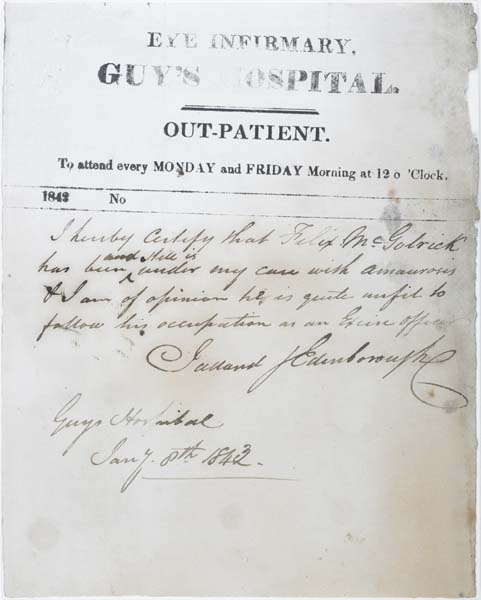 EYE INFIRMARY,
GUY'S HOSPITAL.
OUT-PATIENT.
To attend every MONDAY and FRIDAY Morning at 12 o 'Clock.
1843 No
I hereby certify that Felix McGolrick
and still is
has been under my care with amaurosis
& I am of opinion he is quite unfit to
follow his occupation as an Excise officer
Edenborough
Guys Hospital
Jany. 8th 1843.